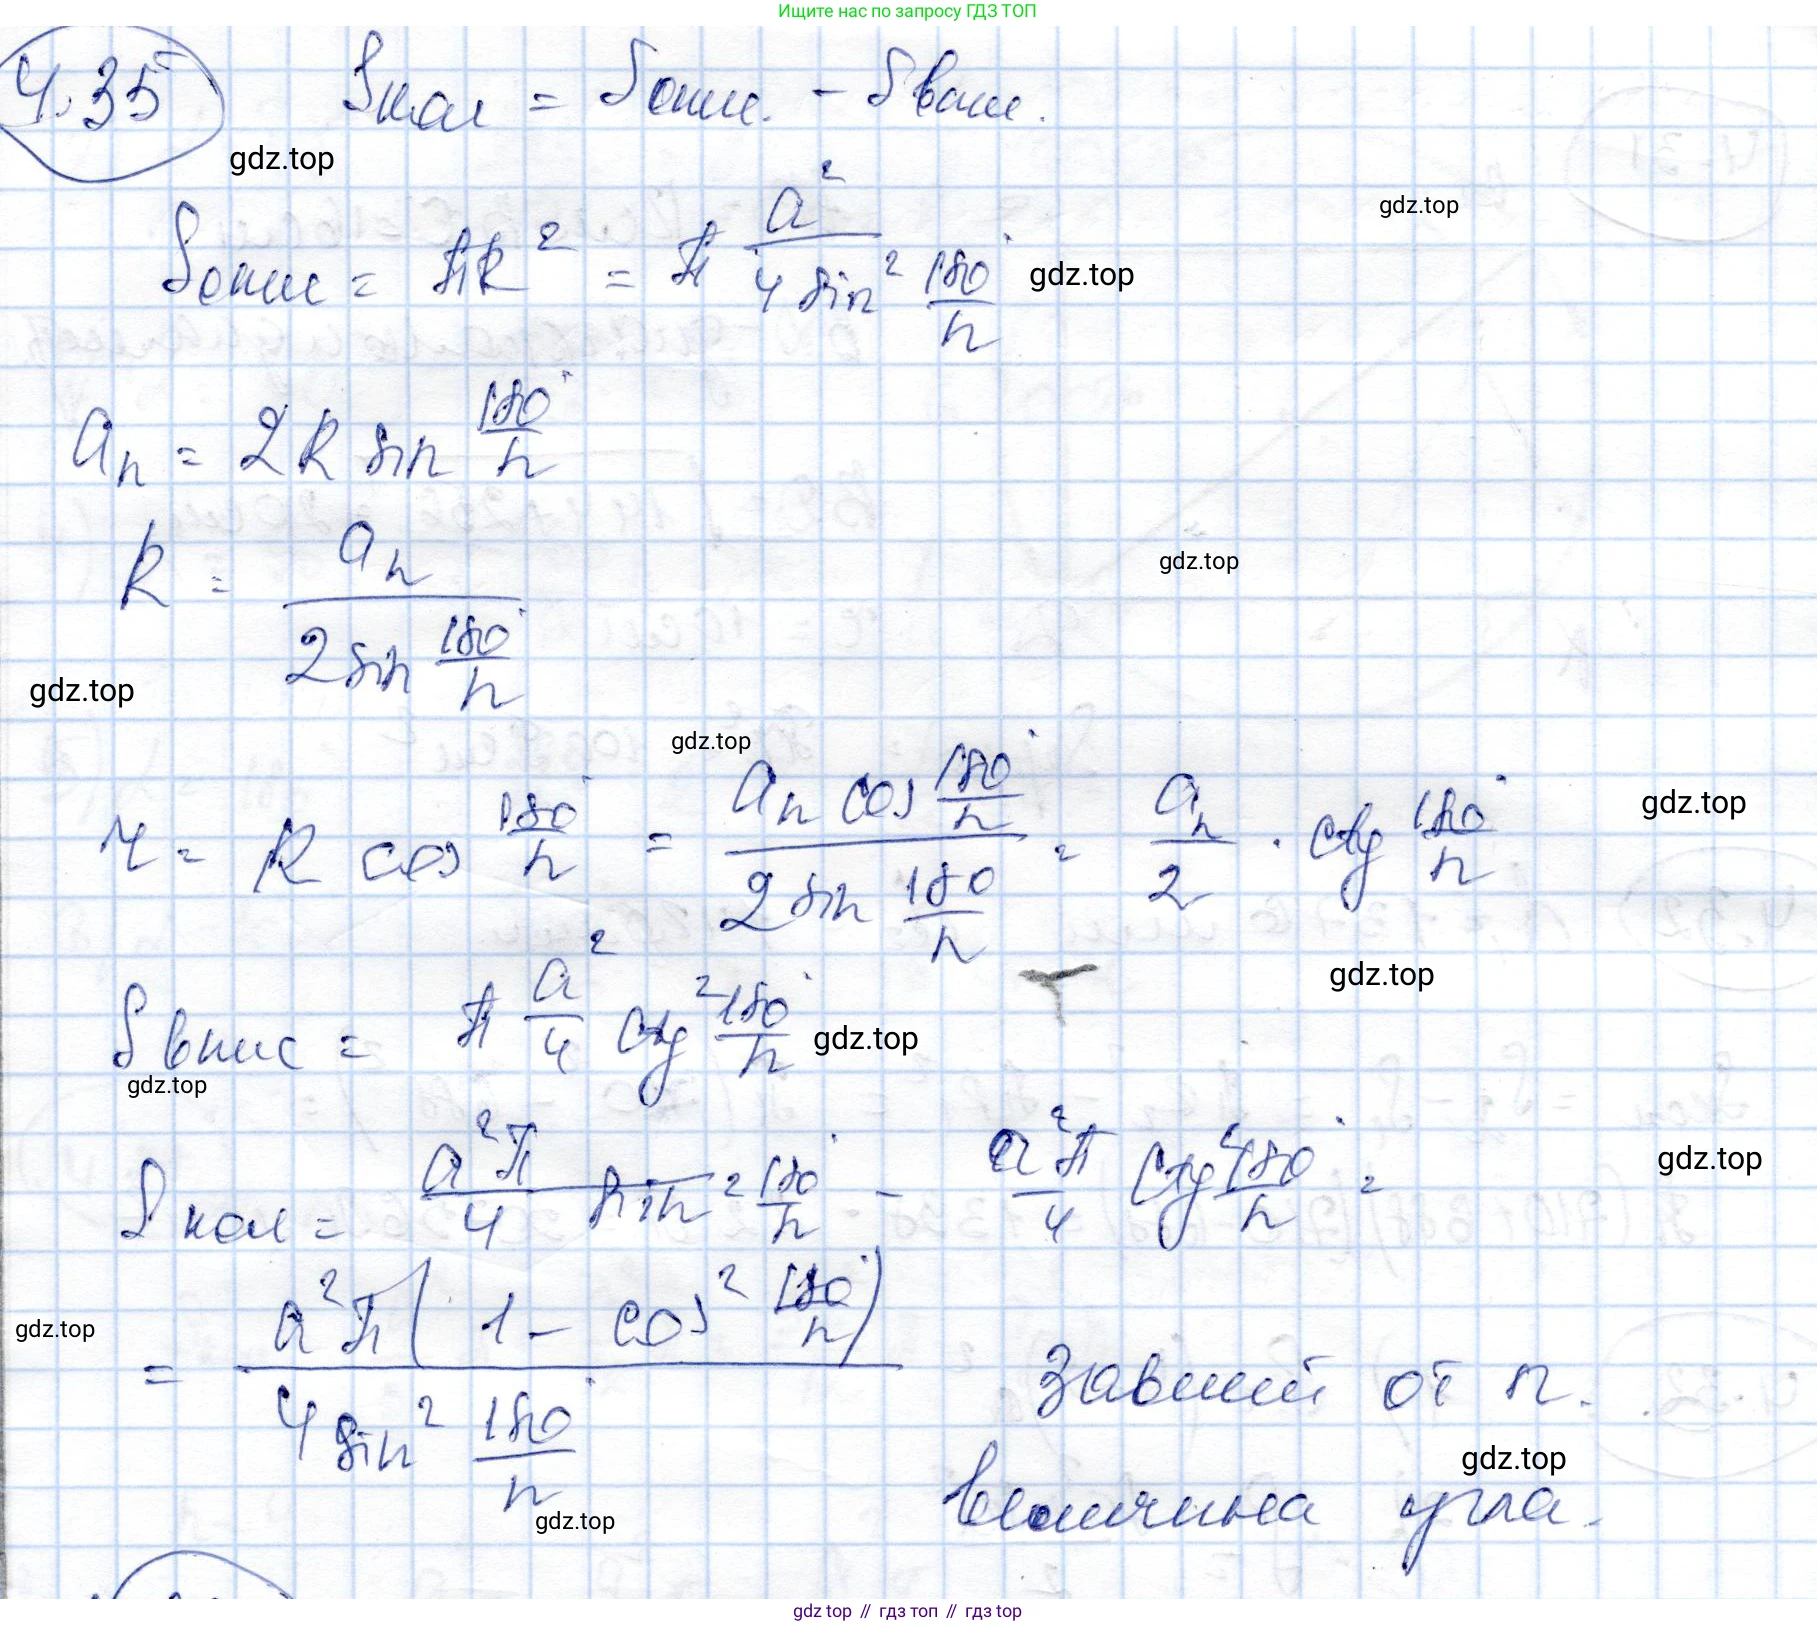 Ищите нас по запросу ГДЗ ТОП
4.35 Sкол = Sопис. - Sвпис.
gdz.top
gdz.top
Sопис = πR² = π a² / (4 sin² 180°/n) gdz.top
aₙ = 2R sin 180°/n
R = aₙ / (2 sin 180°/n)
gdz.top
gdz.top
gdz.top
r = R cos 180°/n = (aₙ cos 180°/n) / (2 sin 180°/n) = aₙ/2 · ctg 180°/n
gdz.top
gdz.top
Sвпис = π a²/4 ctg² 180°/n gdz.top
gdz.top
Sкол = a²π / (4 sin² 180°/n) - a²π/4 ctg² 180°/n =
gdz.top
gdz.top
= a²π(1 - cos² 180°/n) / (4 sin² 180°/n) зависит от n.
gdz.top
величина угла.
gdz.top
gdz.top // гдз топ // гдз top